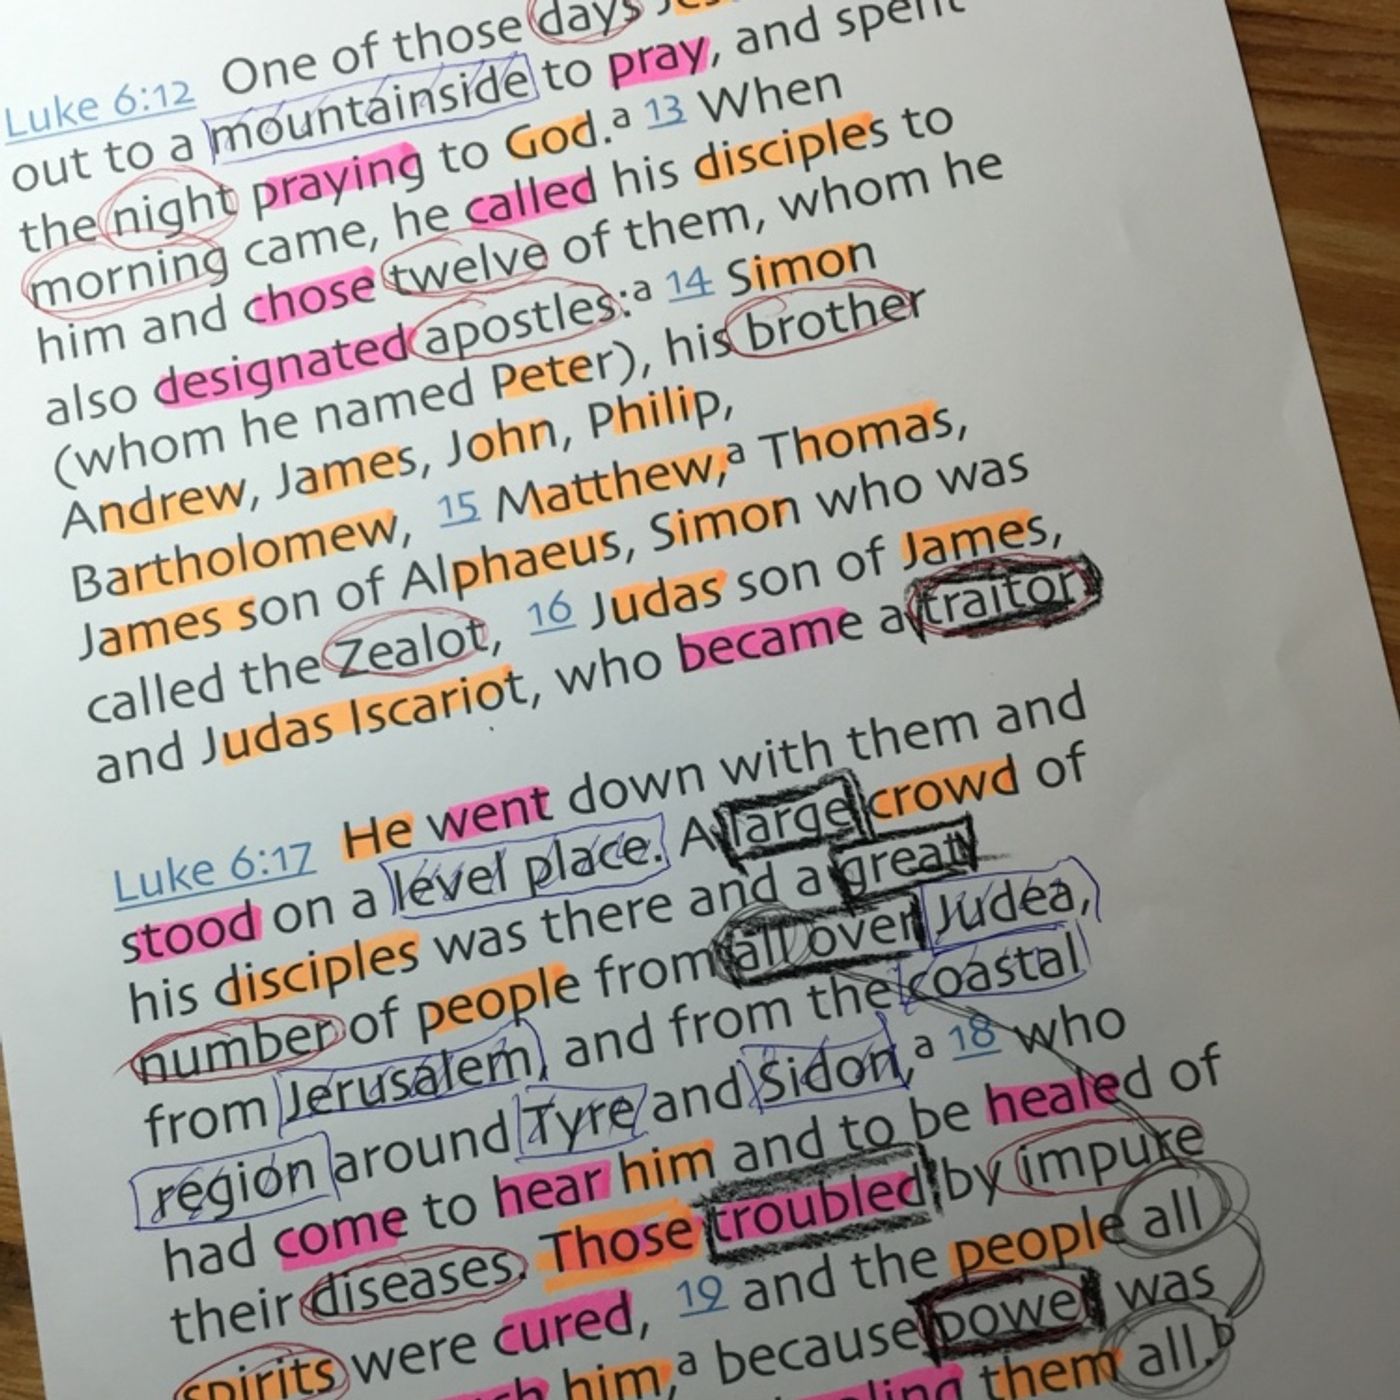 Luke 6:12 One of those days
out to a mountainside to pray, and spent
the night praying to God.a 13 When
morning came, he called his disciples to
him and chose twelve of them, whom he
also designated apostles:a 14 Simon
(whom he named Peter), his brother
Andrew, James, John, Philip,
Bartholomew, 15 Matthew,a Thomas,
James son of Alphaeus, Simon who was
called the Zealot, 16 Judas son of James,
and Judas Iscariot, who became a traitor
Luke 6:17 He went down with them and
stood on a level place. A large crowd of
his disciples was there and a great
number of people from all over Judea,
from Jerusalem, and from the coastal
region around Tyre and Sidon,a 18 who
had come to hear him and to be healed of
their diseases. Those troubled by impure
spirits were cured, 19 and the people all
him,a because power was
them all.b